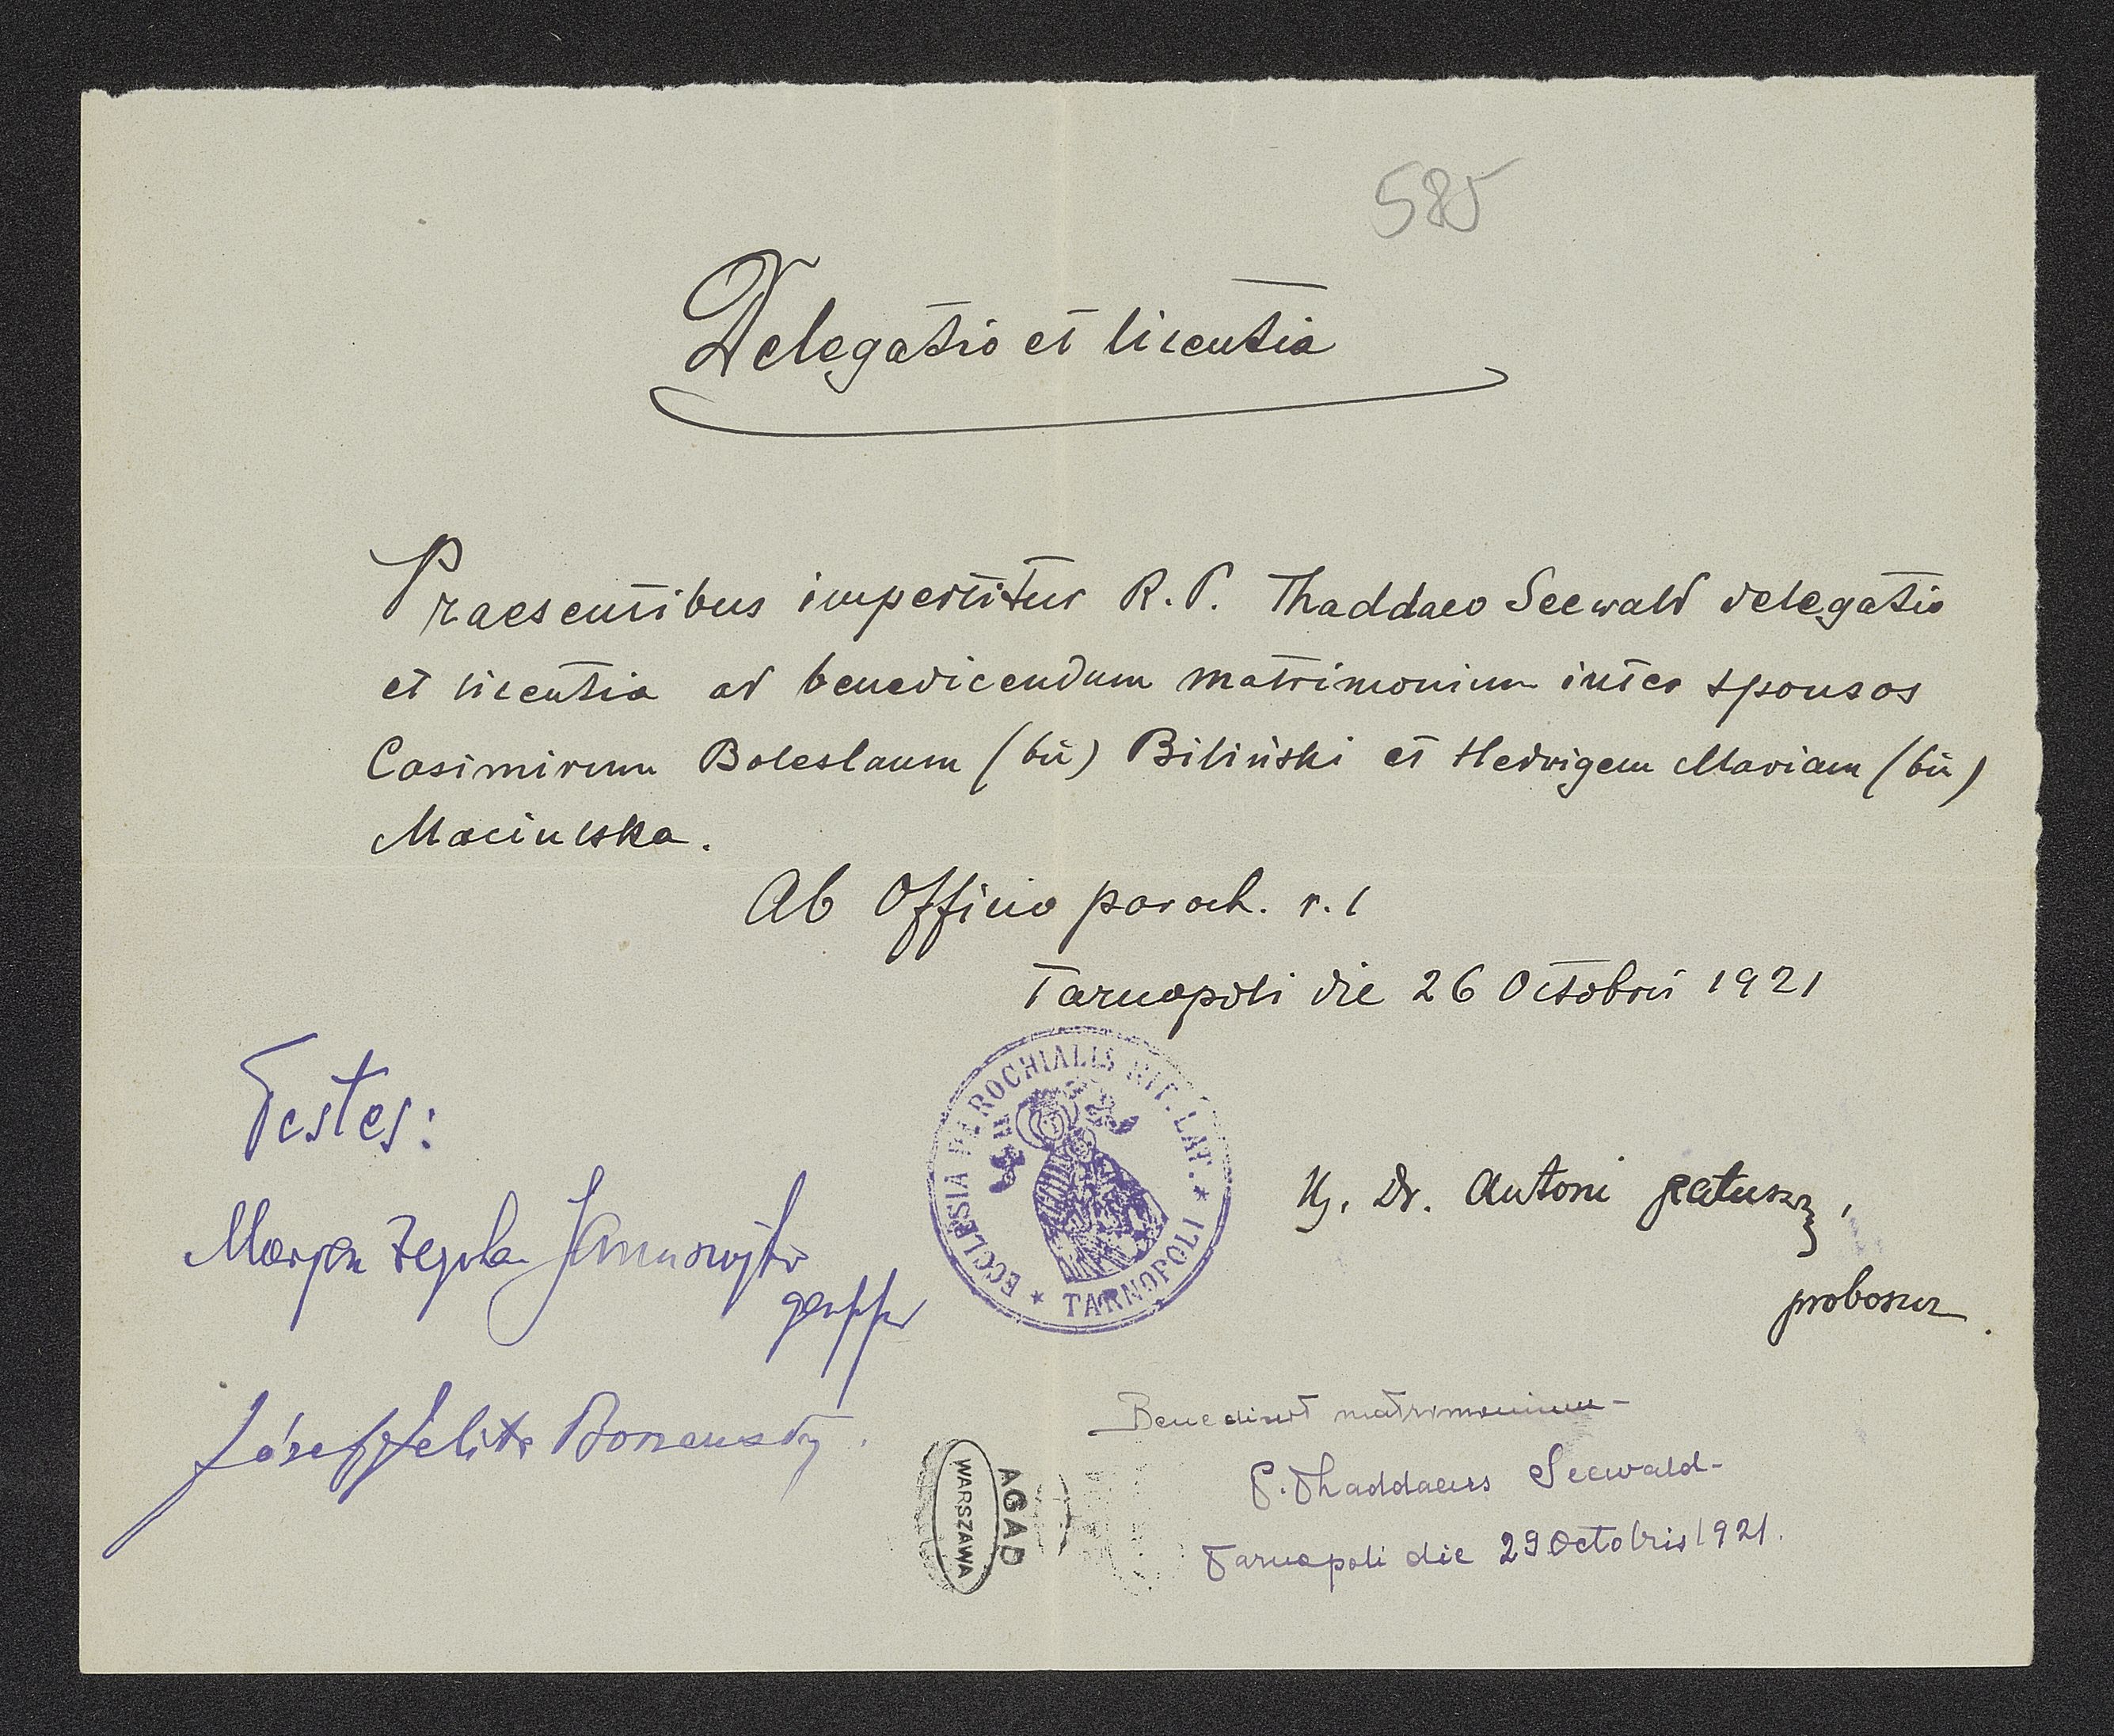 585
Delegatio et licentia
Praesentibus impertitur R. P. Thaddaeo Seewald delegatio
et licentia ad benedicendum matrimonium inter sponsos
Casimirum Boleslaum (bii) Biliński et Hedvigem Mariam (bii)
Maciulska.
Ab Officio paroch. r. l
Tarnopoli die 26 Octobris 1921
ECCLESIA PAROCHIALIS RIT. LAT. * TARNOPOLI *
Testes:
X. Dr. Antoni Ratusz,
Marjan
proboszcz.
Józef
Benedixit matrimonium-
P. Thaddaeus Seewald-
Tarnopoli die 29 Octobris 1921.
AGAD
WARSZAWA